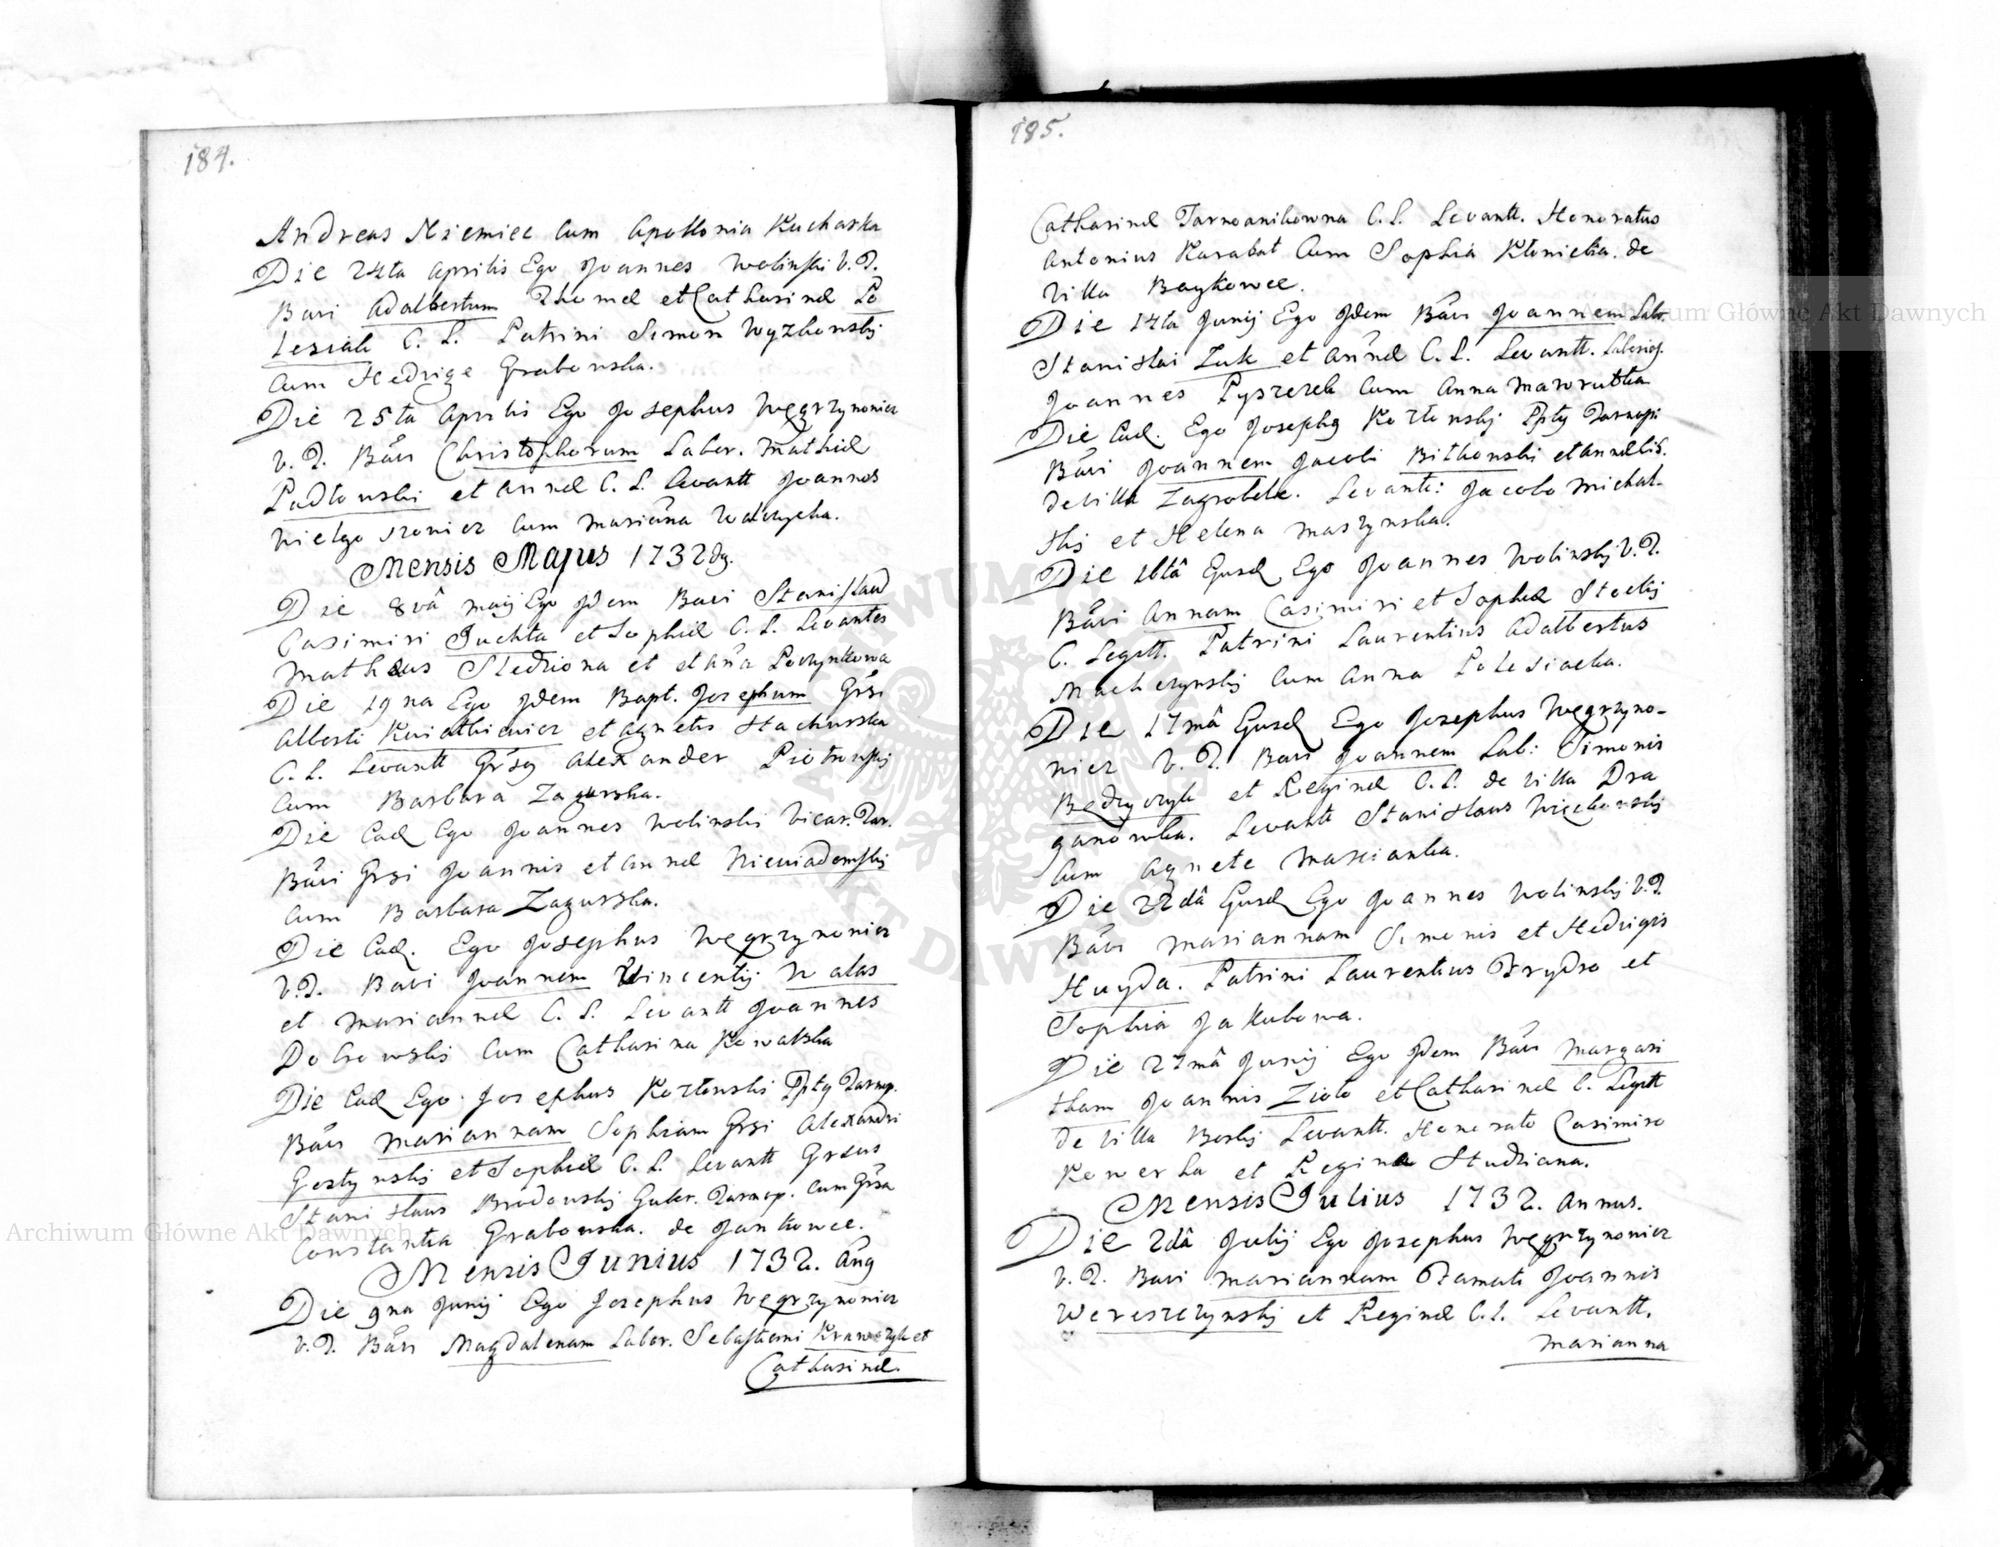 184.
Andreas Niemiec Cum Apollonia Kucharka
Die 24ta Aprilis Ego Joannes Wolinski V.T.
Bavi Adalbertum Thomæ et Catharinæ Po
lesiak C. L. Patrini Simon Wyzkowskij
Cum Hedvige Grabowska.
Die 25ta Aprilis Ego Josephus Węgrzynowicz
V.T. Bãvi Christophorum Labor. Mathiæ
Padlowski et Annæ C. L. Levantt Joannes
cum Marianna
Mensis Majus 1732dg.
Die 8vâ Maij Ego Jdem Bavi Stanislaũ
Casimiri Juchta et Sophiæ C. L. Levantes
Mathæus Sledziona et et Anã
Die 19na Ego Jdem Bapt. Josephum Grsi
Alberti Kwiatkiewicz et Agnetis Stachurska
C. L. Levantt Grsg Alexander Piotrowskij
Cum Barbara Zagurska.
Die Ead Ego Joannes Wolinski Vicar. Tar.
Bãvi Grsi Joannis et Annæ Niewiadomskij
Cum Barbara Zagurska.
Die Ead. Ego Josephus Węgrzynowicz
V.T. Bavi Joannem Vincentij Walas
et Mariannæ C. L. Levantt Joannes
Dobrowskij Cum Catharina Kowalska
Die Ead Ego Josephus Kozlowski Ppty Tarnop.
Bãvi Mariannam Sophiam Grsi Alexandri
Gostynskij et Sophiæ C. L. Levantt Grsus
Stanislaus Brodowskij Guber. Tarnop. Cum Grsa
Constantia Grabowska. de Jankowce.
Mensis Junius 1732. Ang
Die 9na Junij Ego Josephus Węgrzynowicz
V.T. Bãvi Magdalenam Labor. Sebastiani Krawczyk et
Catharinæ.
185.
Catharinæ Tarnoanikowna C. L. Levantt. Honoratus
Antonius Karabat Cum Sophia Klonicka. de
Villa Baykowce.
Die 14ta Junij Ego Jdem Bãvi Joannem Labr.
Stanislai Zuk et Annæ C. L. Levantt. Laboriof.
Joannes Pyszczek Cum Anna
Die Ead. Ego Josephg Kozlowskij Ppty Tarnopi
Bãvi Joannem Jacobi Bitkowski et Annæ
de Villa Zagrobelle. Levante: Jacobo Michal-
skij et Helena Maszynska.
Die 16tâ Ejusd Ego Joannes Wolinskij V.T.
Bãvi Annam Casimiri et Sophiæ Steckij
C. Legitt. Patrini Laurentius Adalbertus
Machczynskij Cum Anna Polesiacka.
Die 17mâ Ejusd Ego Josephus Węgrzyno-
wicz V.T. Bavi Joannem Lab: Simonis
Będzyczyk et Reginæ C. L. de Villa Dra
ganowka. Levantt Stanislaus Więckowskij
Cum Agnete Marcianka.
Die 22dâ Ejusd Ego Joannes Wolinskij V.T.
Bãvi Mariannam Simonis et Hedvigis
Huyda. Patrini Laurentius Brydro et
Sophia Jakubowa.
Die 27mâ Junij Ego Jdem Bãvi Margari
tham Joannis Ziolo et Catharinæ C. Legitt
de Villa Borkij Levantt. Honorato Casimiro
Kowerka et Regina Studziana.
Mensis Julius 1732. Annus.
Die 2dâ Julij Ego Josephus Węgrzynowicz
V.T. Bavi Mariannam Famati Joannis
Wereszczynskij et Reginæ C. L. Levantt.
Marianna
Archiwum Główne Akt Dawnych
Archiwum Główne Akt Dawnych
ARCHIWUM GŁÓWNE AKT DAWNYCH